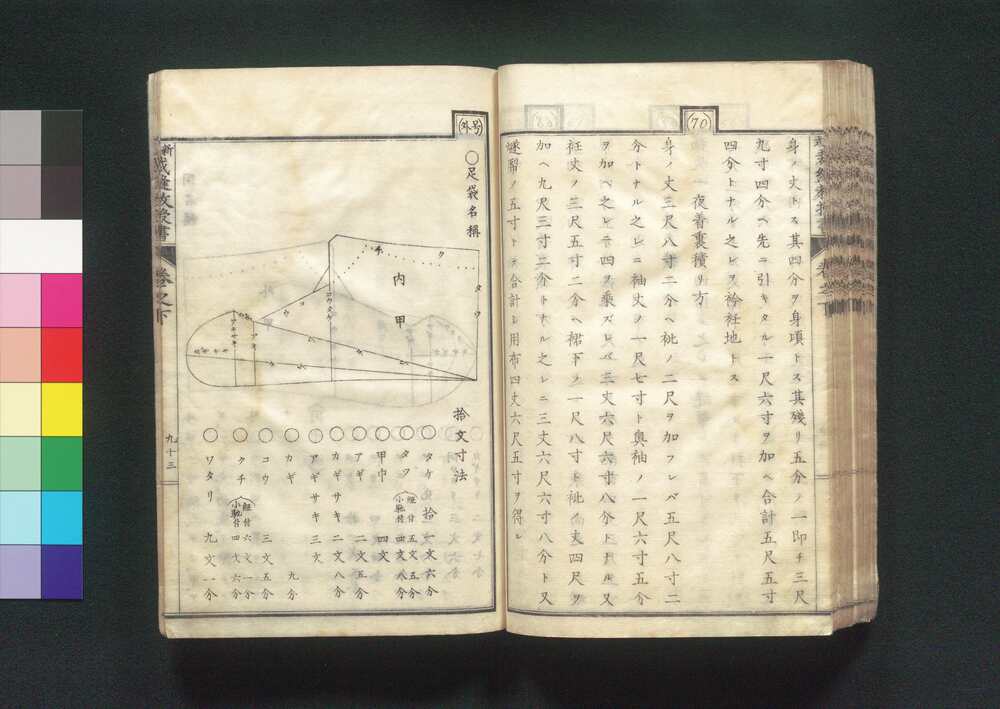 70
身ノ丈トス其四分ヲ身頃トス其残リ五分ノ一即チ三尺
九寸四分ヘ先ニ引キタル一尺六寸ヲ加ヘ合計五尺五寸
四分トナル之レヲ衿衽地トス
夜着裏積リ方
身ノ丈三尺八寸二分ヘ袘ノ二尺ヲ加フレバ五尺八寸二
分トナル之レニ袖丈ノ一尺七寸ト奥袖ノ一尺六寸五分
ヲ加ヘ之レニ四ヲ乗ズレバ三丈六尺六寸八分トナル又
衽丈ノ三尺五寸二分ヘ裙下ヲ一尺八寸ト袘ノ丈四尺ヲ
加ヘ九尺三寸二分トナル之レニ三丈六尺六寸八分ト又
ノ五寸トヲ合計シ用布四丈六尺五寸ヲ得ル
号外
〇足袋名稱
内甲
拾文寸法
〇タケ 拾一文六分
〇タワ 鯉付 五文五分 小馳付 四文八分
〇甲巾 四文
〇アギ 二文五分
〇カギサキ 二文八分
〇アギサキ 三文
〇カギ 九分
〇コウ 三文五分
〇クチ 鯉付 六文一分 小馳付 四文六分
〇ワタリ 九文一分
新裁縫教授書
卷之下
九十三